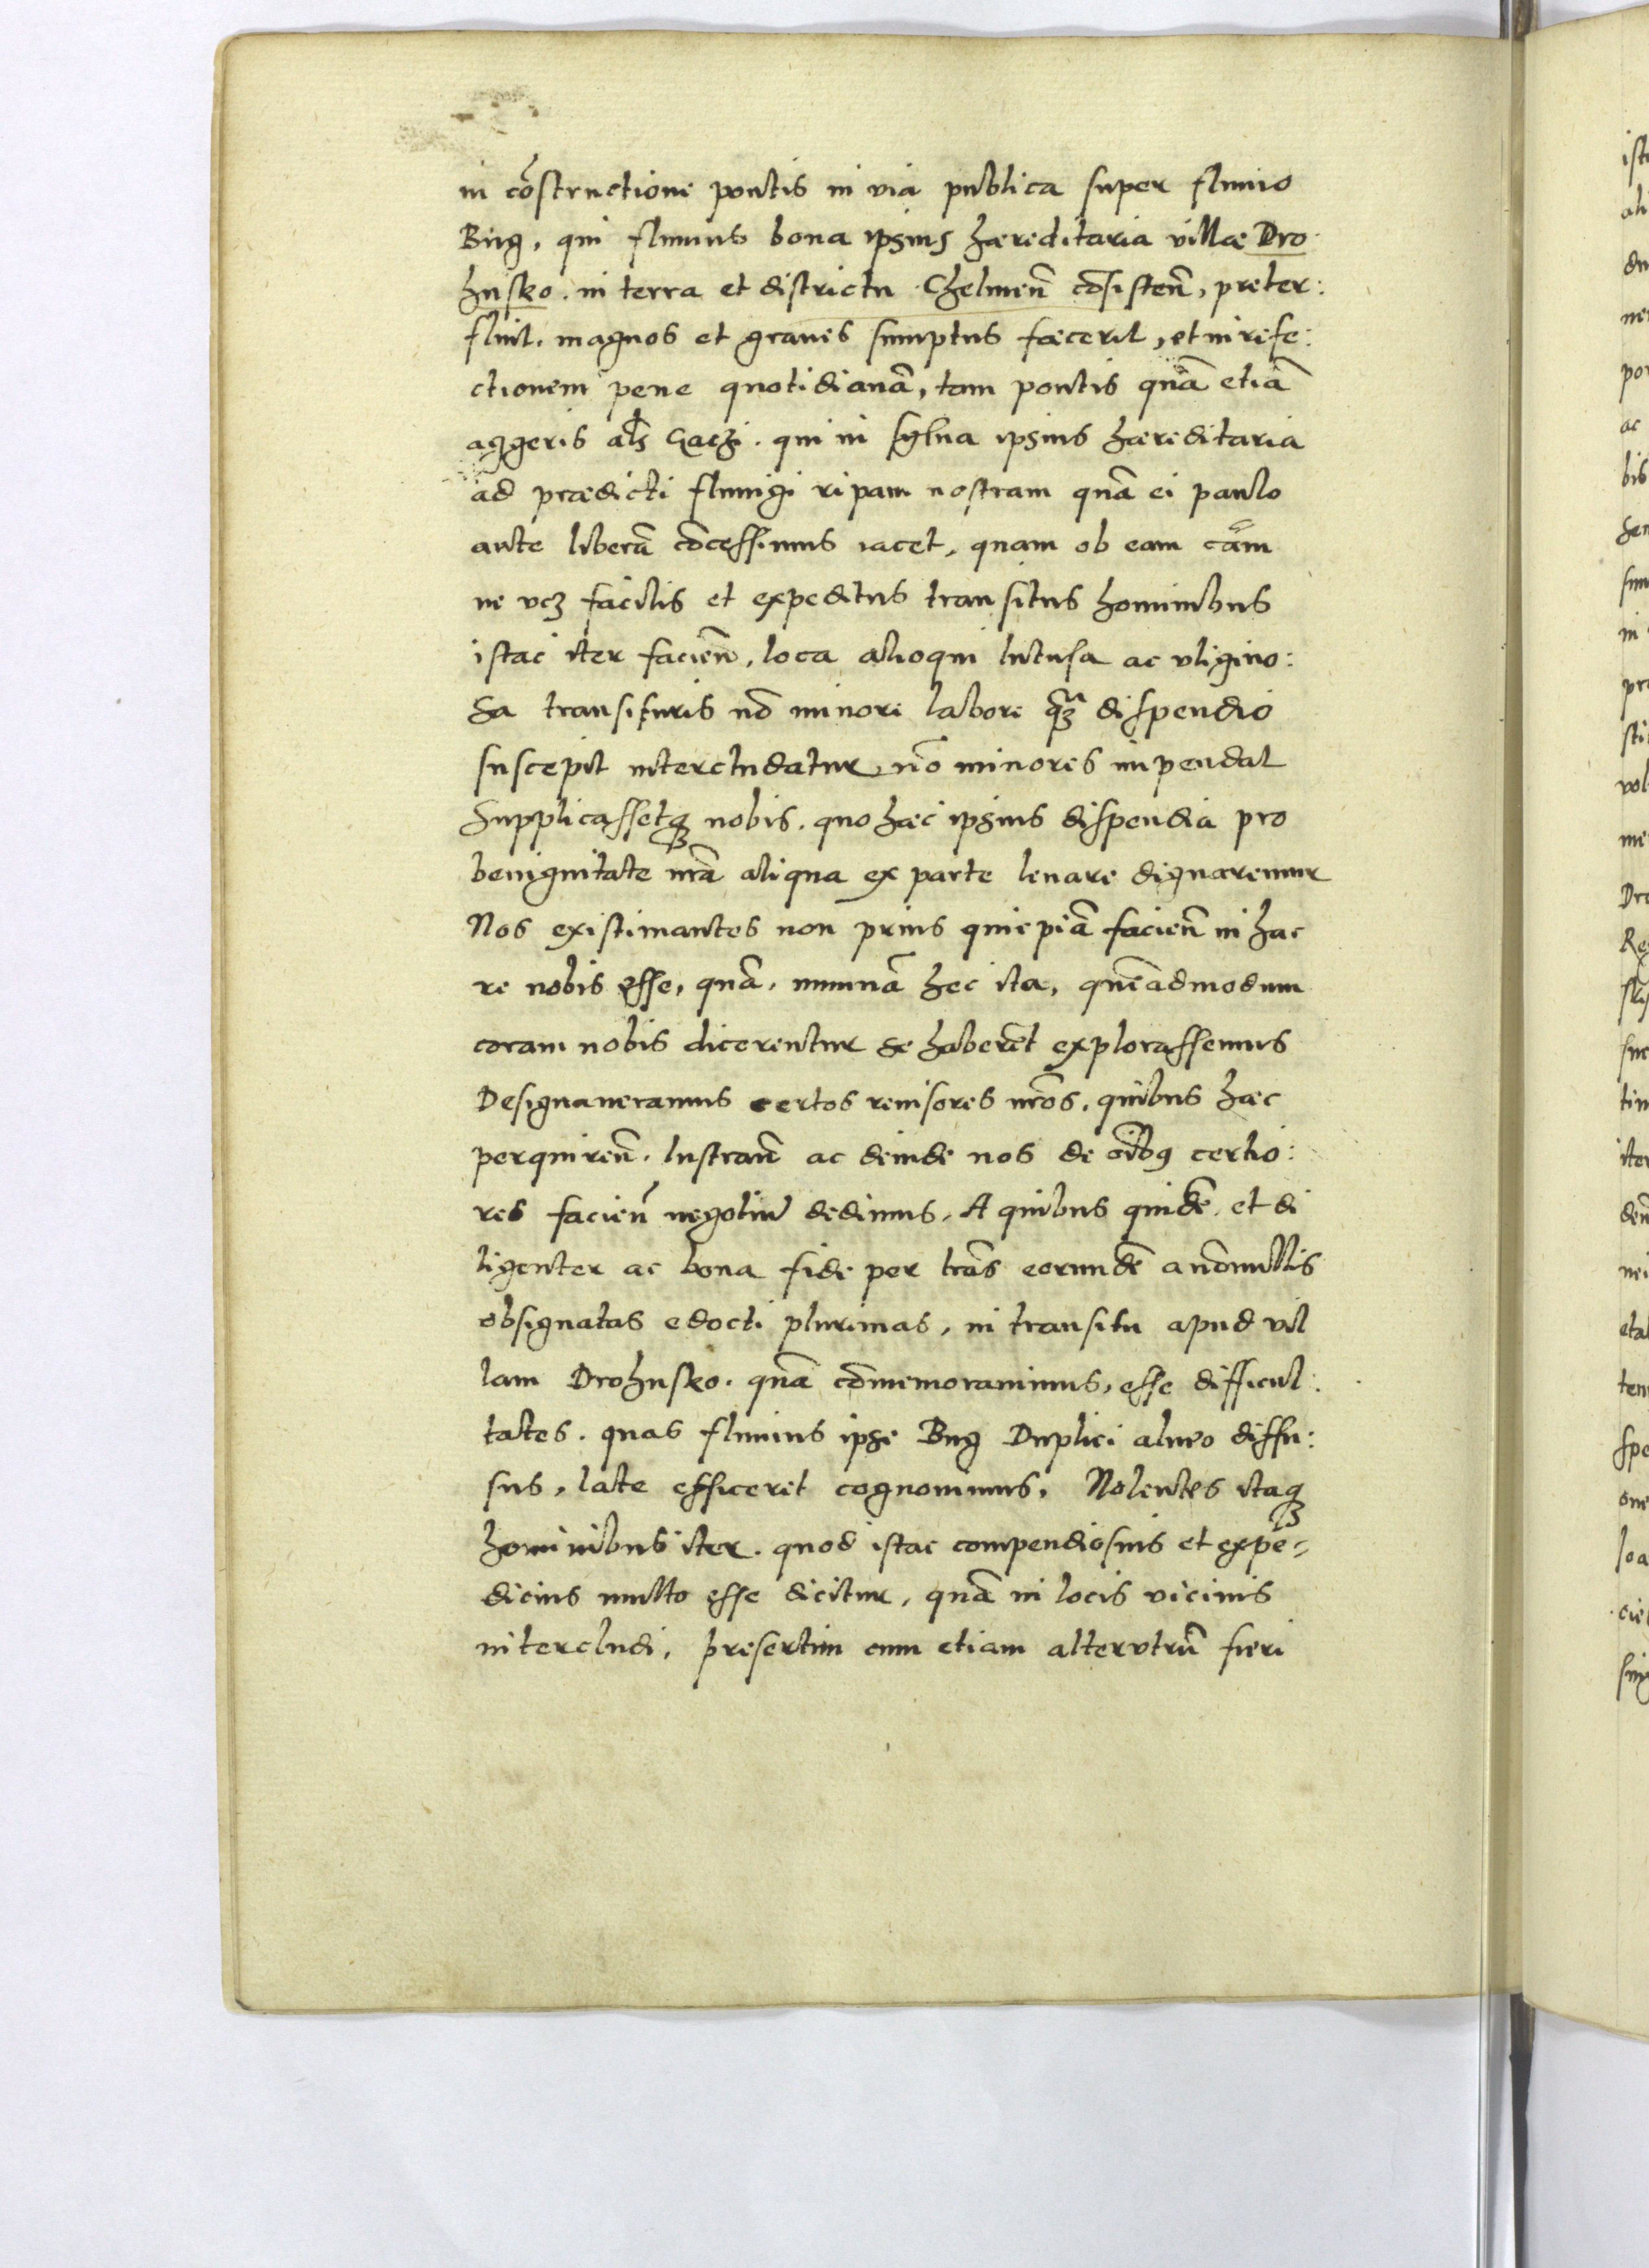 in cōstructione pontis in via publica super fluuio
Bug, qui fluuius bona ipsius hæreditaria villæ Dro
husko. in terra et districtu Chelmeñ cōsisteñ, preter:
fluit. magnos et graues sumptus fæcerit, et in refe:
ctionem pene quotidianā, tam pontis quā etiā
aggeris als Gaczi. qui in sylua ipsius hæreditaria
ad prædicti fluuigi ripam nostram quā ei paulo
ante liberā cōcessimus iacet, quam ob eam cām
ne vcz facilis et expeditus transitus hominibus
istac iter facieñ, loca alioqui lutusa ac vligino:
sa transituris nō minore labore qz dispendio
suscepit intercludatur nō minores impendat
Supplicassetqz nobis. quo hæc ipsius dispendia pro
benignitate nrā aliqua ex parte leuare dignaremur
Nos existimantes non prius quicpiā facieñ in hac
re nobis esse, quā, numnā hec ita, quēadmodum
coram nobis dicerentur se haberēt explorassemus
Designaueramus certos reuisores nrōs, quibus hæc
perquireñ. lustrañ ac deinde nos de oībq certio:
res facieñ negotiū dedimus, A quibus quidē, et di
ligenter ac bona fide per lrās eorundē a nōnullis
obsignatas edocti plurimas, in transitu apud vil
lam Drohusko. quā cōmemorauimus, esse difficul:
tates. quas fluuius ipse Bug Duplici alueo diffu:
sus, late efficeret cognouimus. Nolentes itaqz
hominibus iter. quod istac compendiosius et expe=
dicius multo esse dicitur, quā in locis vicinis
intercludi, presertim cum etiam alterutrū fieri